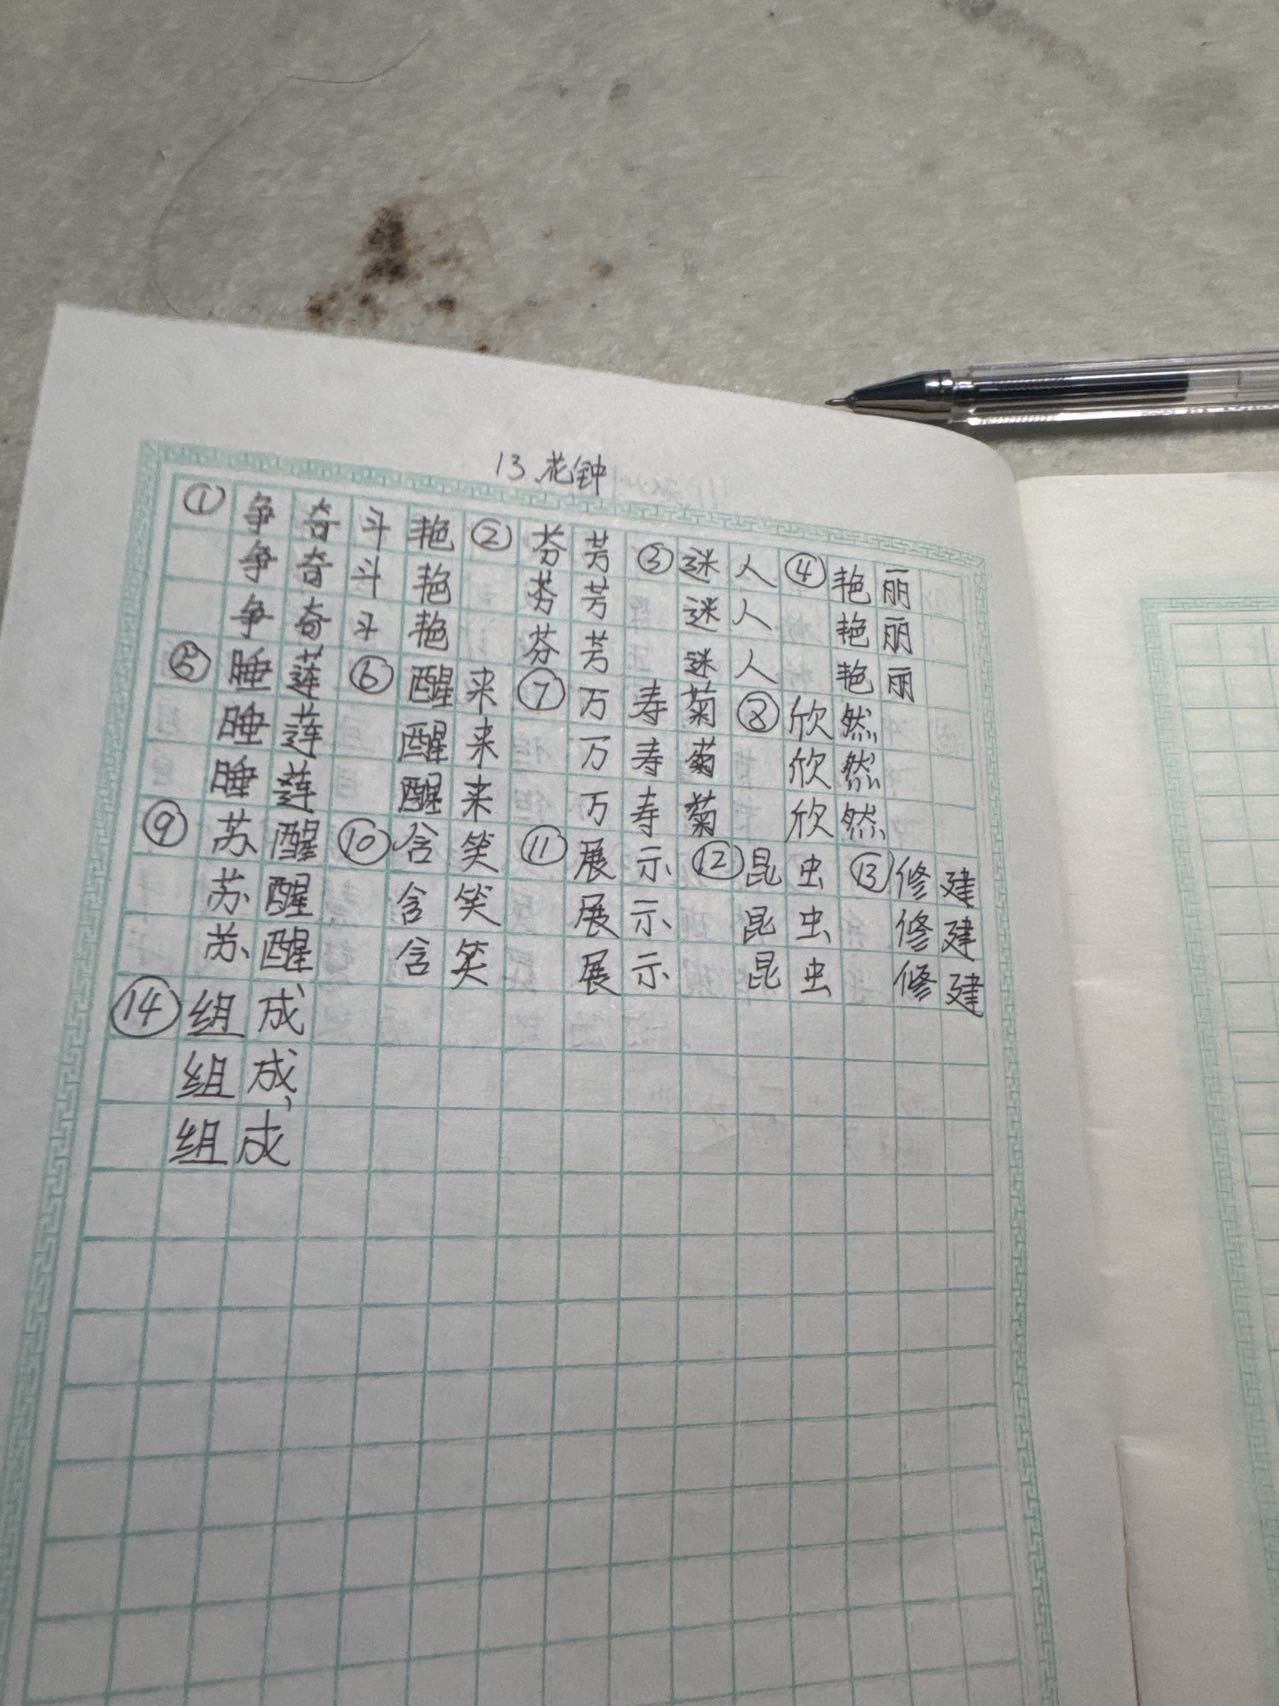 13、花钟
① 争奇斗艳 ② 芬芳 ③ 迷人 ④ 艳丽
争奇斗艳 芬芳 迷人 艳丽
争奇斗艳 芬芳 迷人 艳丽
⑤ 睡莲 ⑥ 醒来 ⑦ 万寿菊 ⑧ 欣然
睡莲 醒来 万寿菊 欣然
睡莲 醒来 万寿菊 欣然
⑨ 苏醒 ⑩ 含笑 ⑪ 展示 ⑫ 昆虫 ⑬ 修建
苏醒 含笑 展示 昆虫 修建
苏醒 含笑 展示 昆虫 修建
⑭ 组成
组成
组成